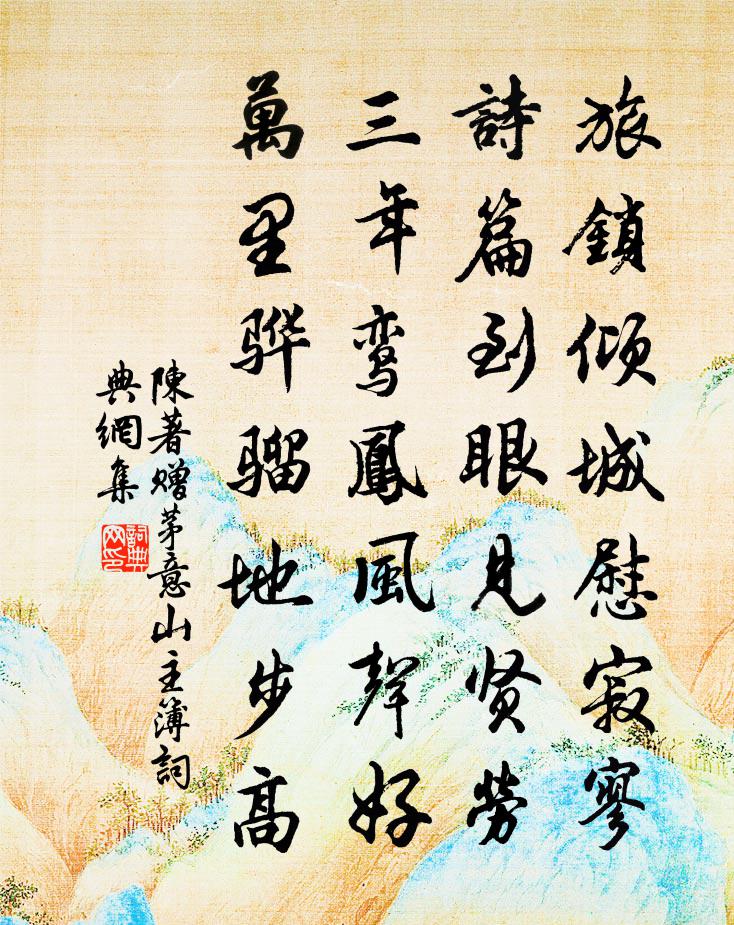 旅鎖傾城慰寂寥
詩篇到眼見贤勞
三年鸾鳳風聲好
萬里骅骝地步高
陳著赠茅意山主簿詞
典網集
詞典网印